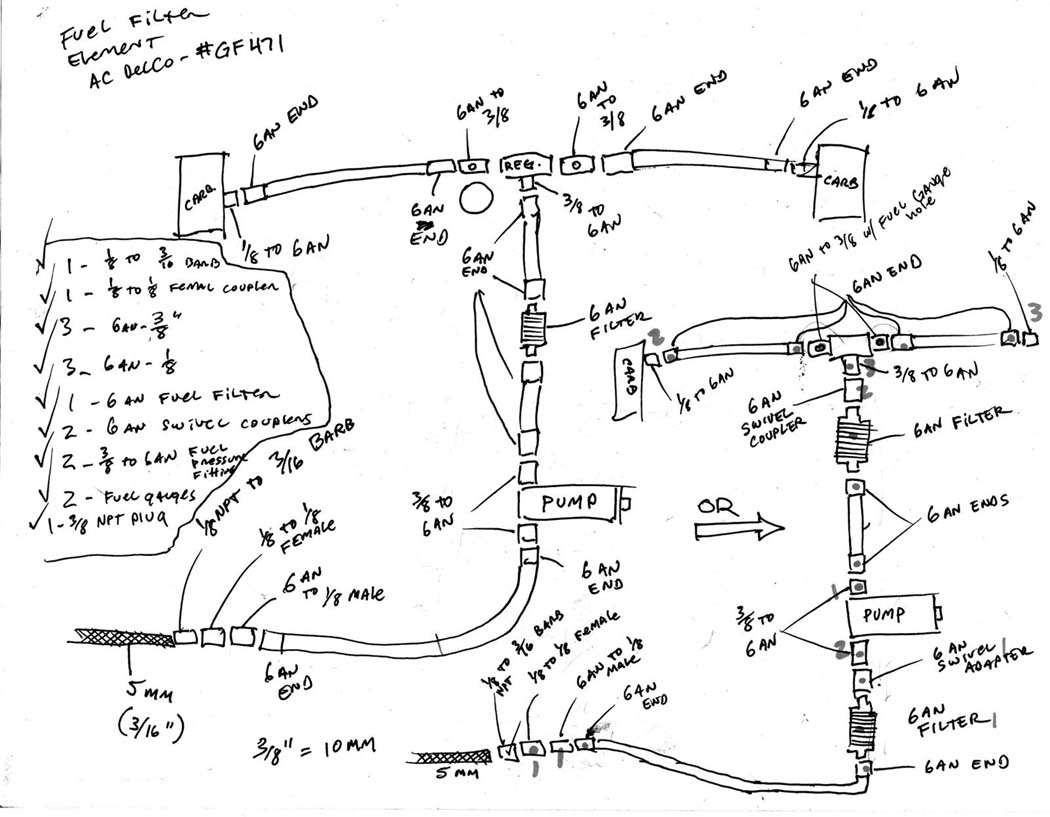 FUEL FILTER
ELEMENT
AC DELCO - #GF471
6AN END
6AN TO
3/8
6AN
TO
3/8
6AN END
6AN END
1/8 TO 6AN
CARB.
REG.
CARB
1/8 TO 6AN
6AN
END
3/8 TO
6AN
6AN
END
6AN
FILTER
1 - 1/8 TO 3/16 BARB
1 - 1/8 TO 1/8 FEMAL COUPLER
3 - 6AN - 3/8"
3 - 6AN - 1/8
1 - 6AN FUEL FILTER
2 - 6AN SWIVEL COUPLERS
2 - 3/8 TO 6AN FUEL
PRESSURE
FITTING
2 - FUEL GAUGES
1 - 3/8 NPT PLUG
1/8 NPT TO 3/16 BARB
1/8 TO 1/8
FEMALE
6AN
TO 1/8 MALE
3/8 TO
6AN
PUMP
6AN
END
6AN
END
5MM
(3/16")
3/8" = 10MM
OR
6AN TO 3/8 W/ FUEL GAUGE
HOLE
6AN END
1/8 TO 6AN
3
2
CARB
1/8 TO 6AN
3
3/8 TO 6AN
2
6AN
SWIVEL
COUPLER
6AN FILTER
6AN ENDS
1
3/8 TO
6AN
PUMP
2
6AN
SWIVEL
ADAPTER
1
6AN
FILTER
1
6AN END
1/8 TO 3/16 BARB
NPT
1/8 TO 1/8 FEMALE
6AN TO 1/8
MALE
6AN
END
5MM
1
1